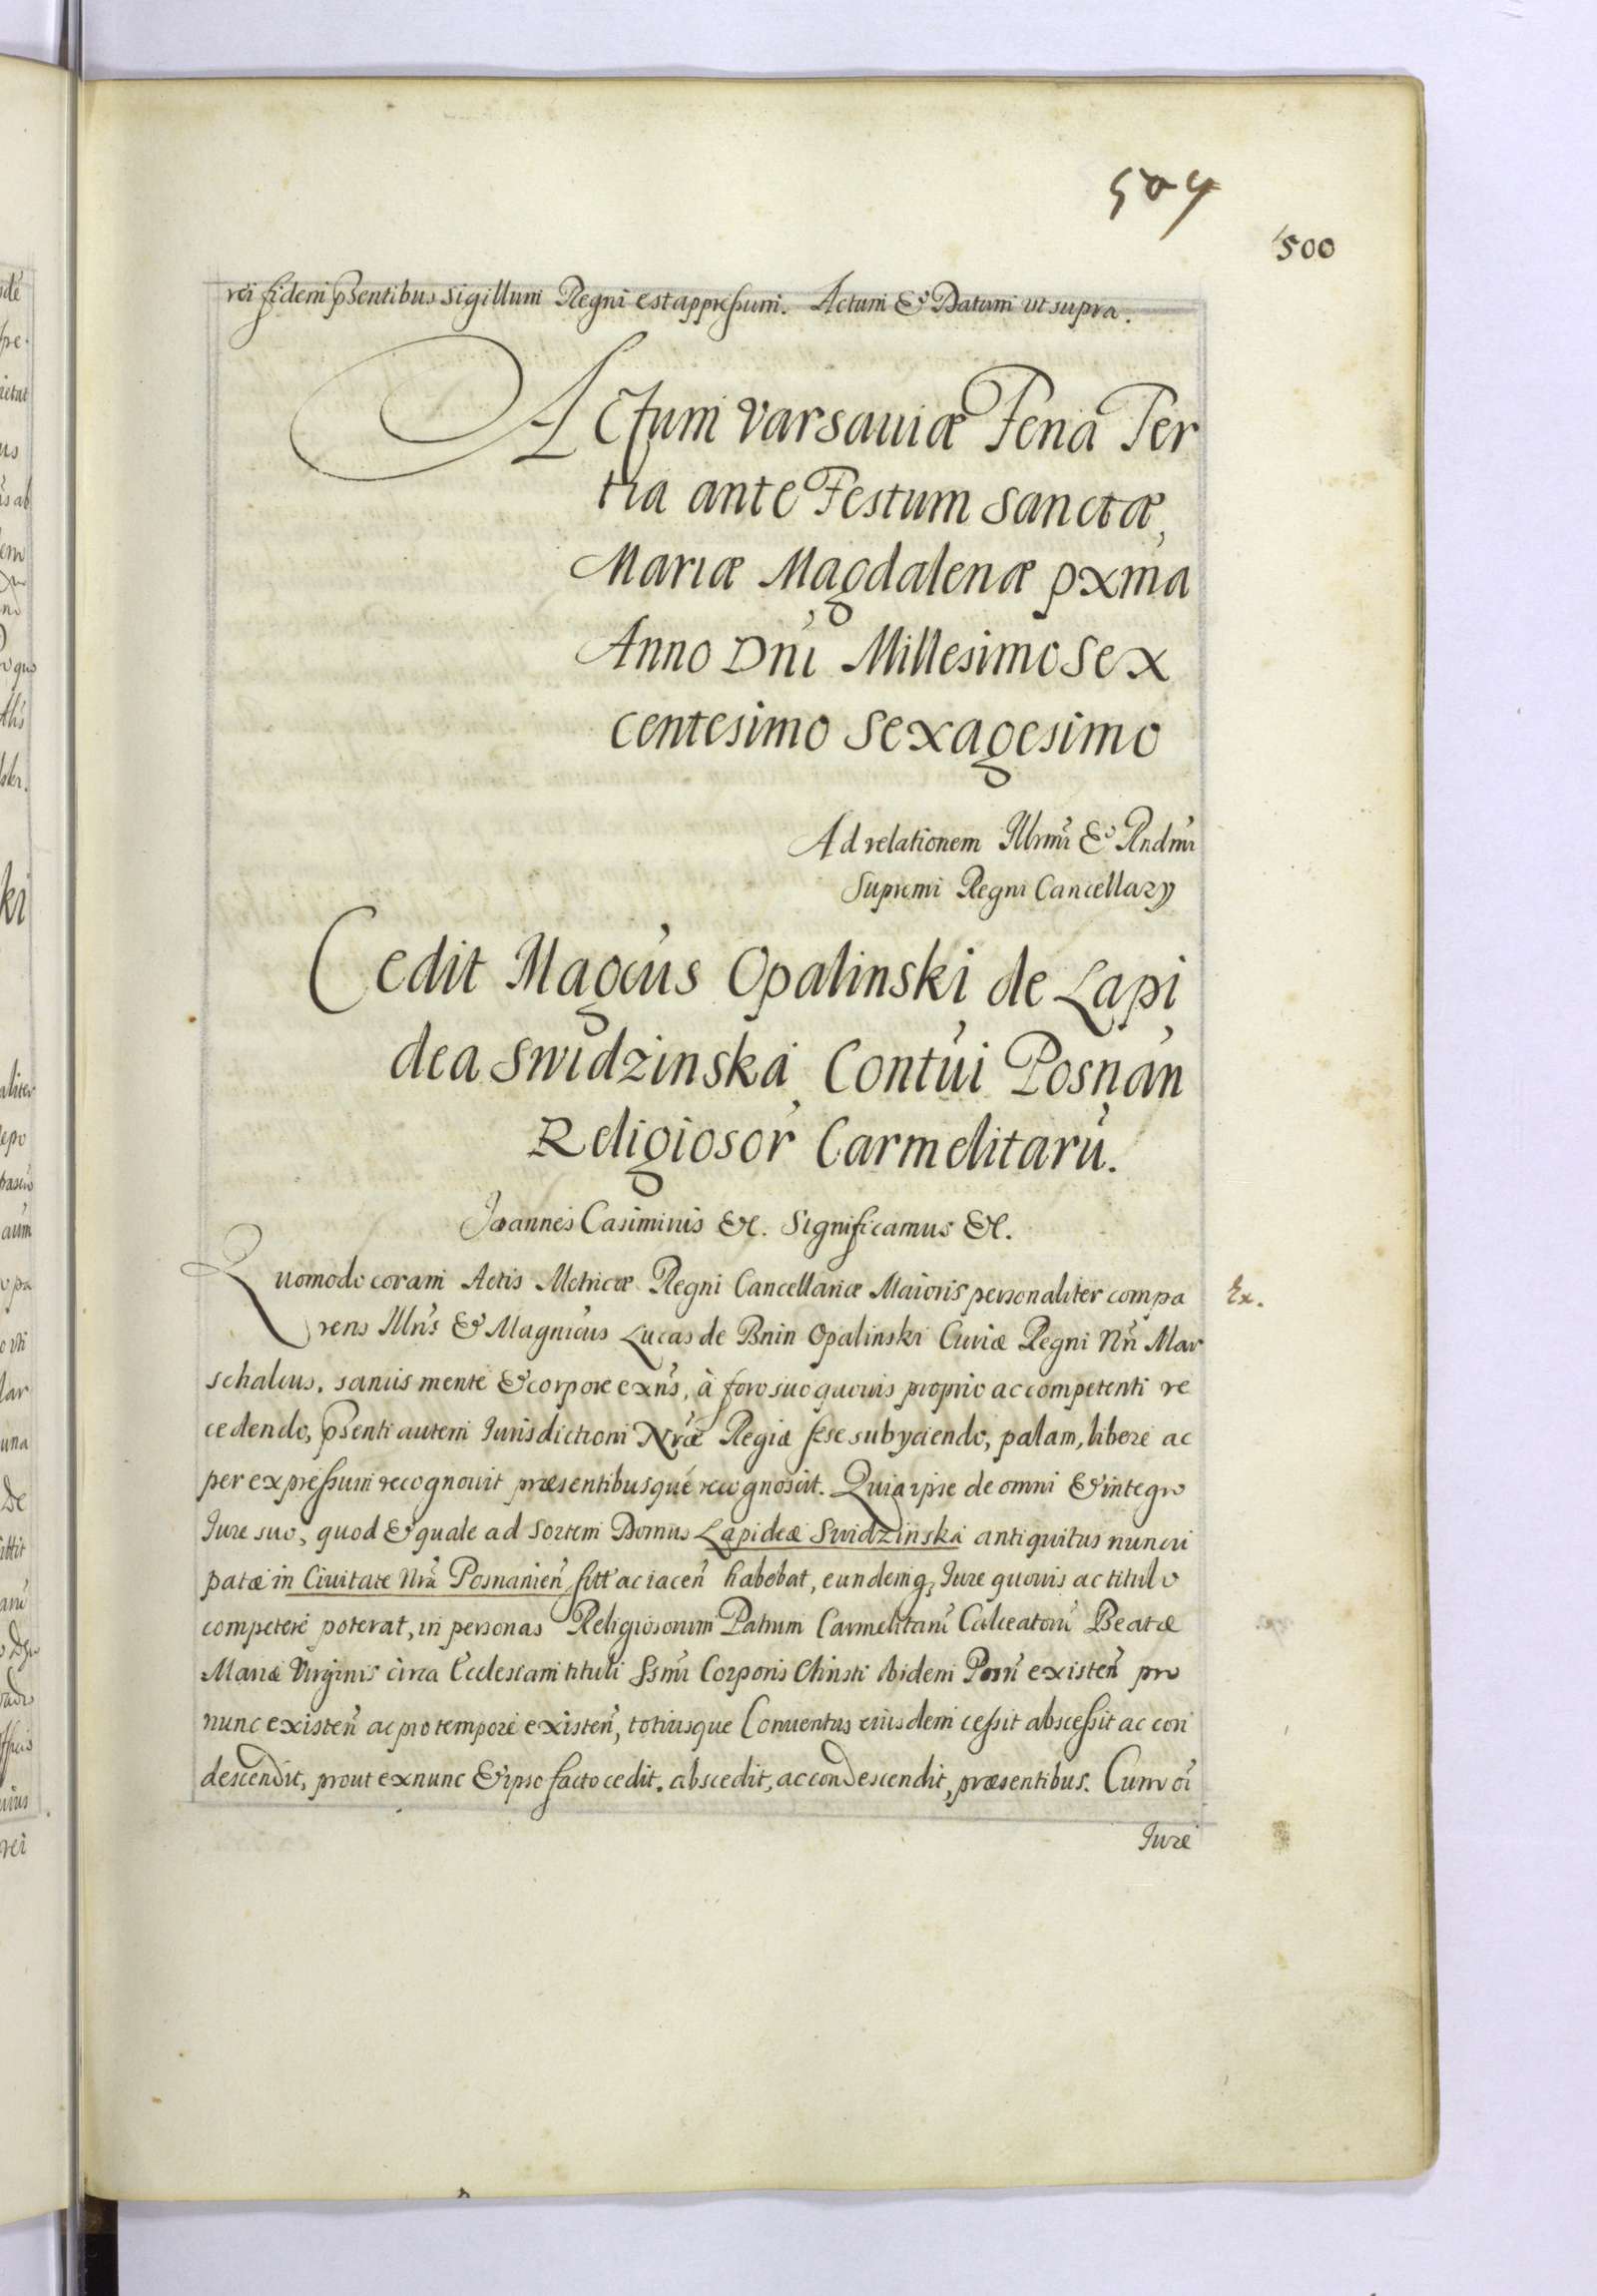 504
500
rei fidem psentibus sigillum Regni est appressum. Actum & Datum ut supra.
Actum Varsaviæ Feria Ter
tia ante Festum Sanctæ
Mariæ Magdalenæ pxma
Anno Dni Millesimo Sex
centesimo Sexagesimo
Ad relationem Illrmi & Rndmi
Supremi Regni Cancellarij
Cedit Magcus Opalinski de Lapi
dea Swidzinska Contui Posnan
Religiosor Carmelitaru.
Joannes Casimirus &c. Significamus &c.
Quomodo coram Actis Metricæ Regni Cancellariæ Maioris personaliter compa
Ex.
rens Illris & Magnicus Lucas de Bnin Opalinski Curiæ Regni Nri Mar
schalcus, sanus mente & corpore exns, à foro suo quovis proprio ac competenti re
cedendo, psenti autem Jurisdictioni Nræ Regiæ sese subyciendo, palam, libere ac
per expressum recognovit præsentibusqué recognoscit. Quia ipse de omni & integro
Jure suo, quod & quale ad sortem Domus Lapideæ Swidzinska antiquitus nuncu
patæ in Civitate Nra Posnanien sitt ac iacen habebat, eundemq, Jure quovis ac titulo
competere poterat, in personas Religiosorum Patrum Carmelitaru Calceatoru Beatæ
Mariæ Virginis circa Ecclesiam tituli Ssmi Corporis Christi ibidem Posn existen pro
nunc existen ac pro tempore existen, totiusque Conventus eiusdem cessit abscessit ac con
descendit, prout ex nunc & ipso facto cedit, abscedit, ac condescendit, præsentibus. Cum oi
Jure